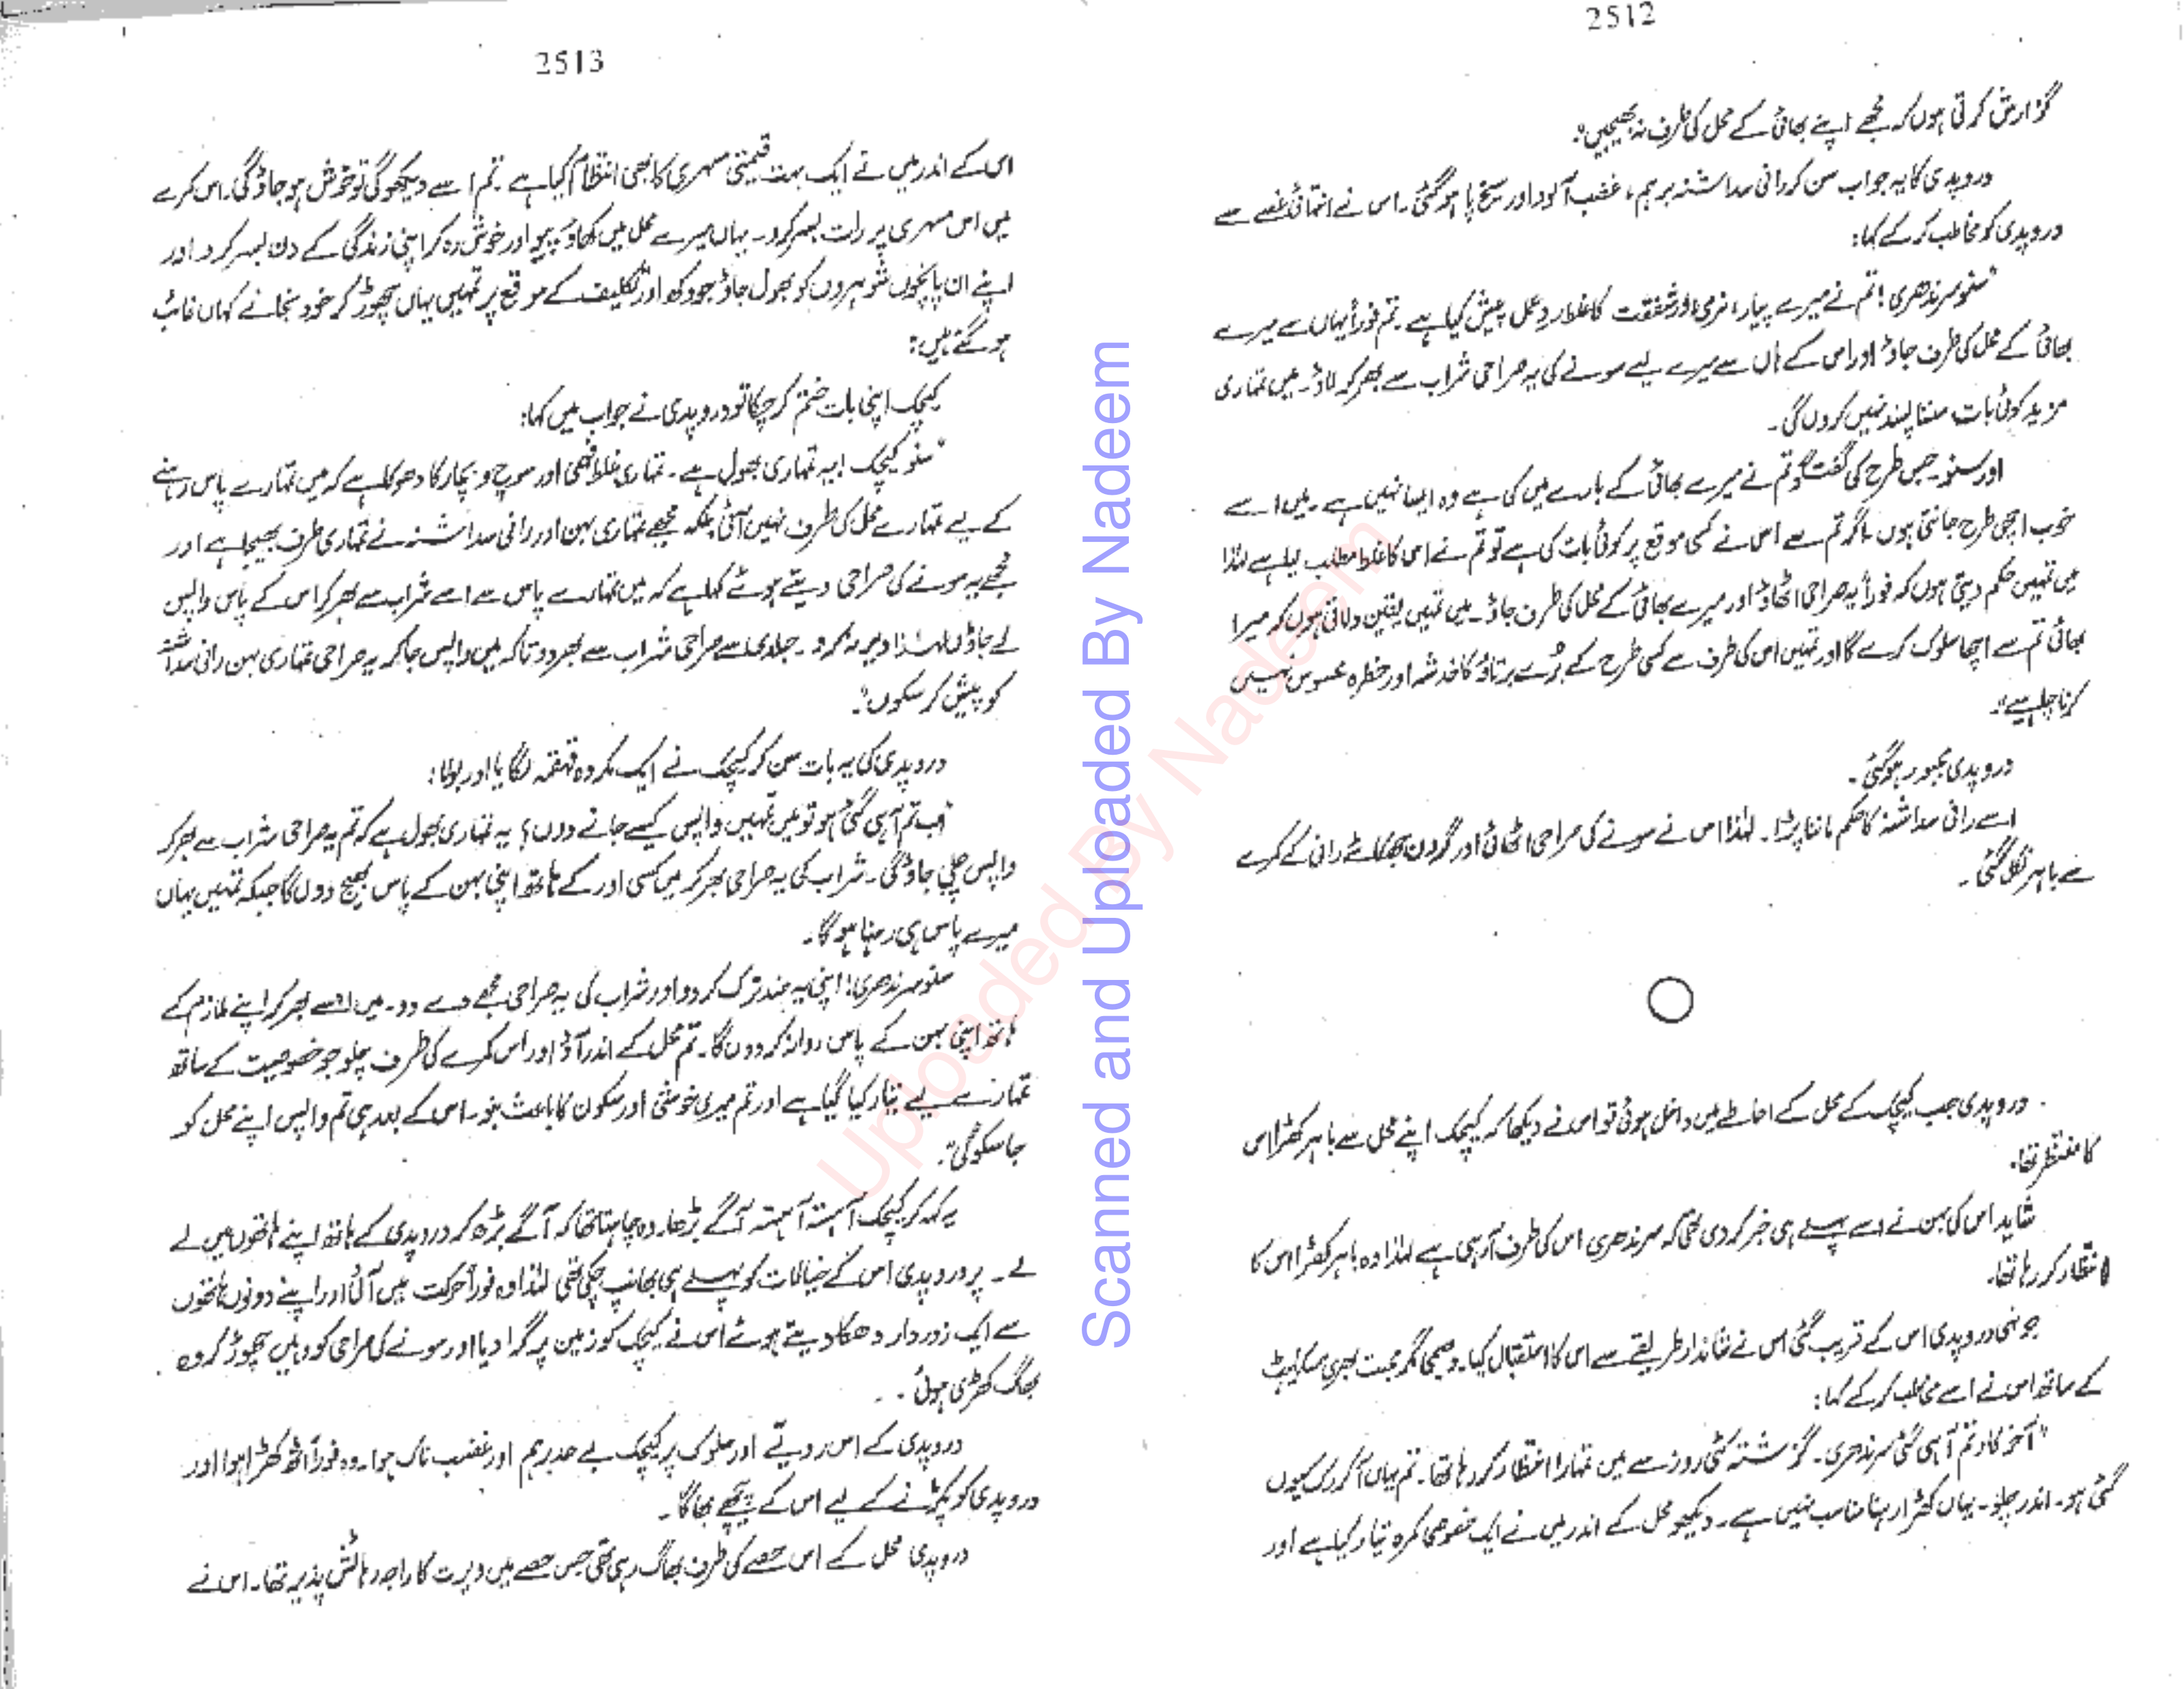 2512
گزارش کرتی ہوں کہ مجھے اپنے بھائی کے محل کی طرف نہ بھیجیں"۔
دروپدی کا یہ جواب سن کر رانی سداشنہ برہم، غضب آلود اور سیخ پا ہو گئی۔ اس نے انتہائی غصے سے
دروپدی کو مخاطب کر کے کہا:
"سنو سرندھری! تم نے میرے پیار، نرمی اور شفقت کا غلط ردِ عمل پیش کیا ہے۔ تم فوراً یہاں سے میرے
بھائی کے محل کی طرف جاؤ اور اس کے ہاں سے میرے لیے سونے کی یہ صراحی شراب سے بھر کر لاؤ۔ میں تمہاری
مزید کوئی بات سننا پسند نہیں کروں گی۔
اور سنو۔ جس طرح کی گفتگو تم نے میرے بھائی کے بارے میں کی ہے وہ ایسا نہیں ہے۔ میں اسے
خوب اچھی طرح جانتی ہوں۔ اگر تم سے اس نے کسی موقع پر کوئی بات کی ہے تو تم نے اس کا غلط مطلب لیا ہے لہٰذا
میں تمہیں حکم دیتی ہوں کہ فوراً یہ صراحی اٹھاؤ اور میرے بھائی کے محل کی طرف جاؤ۔ میں تمہیں یقین دلاتی ہوں کہ میرا
بھائی تم سے اچھا سلوک کرے گا اور تمہیں اس کی طرف سے کسی طرح کے بُرے برتاؤ کا خدشہ اور خطرہ محسوس نہیں
کرنا چاہیے"۔
دروپدی مجبور ہو گئی۔
اسے رانی سداشنہ کا حکم ماننا پڑا۔ لہٰذا اس نے سونے کی صراحی اٹھائی اور گردن جھکائے رانی کے کمرے
سے باہر نکل گئی۔
دروپدی جب کیچک کے محل کے احاطے میں داخل ہوئی تو اس نے دیکھا کہ کیچک اپنے محل سے باہر کھڑا اس
کا منتظر تھا۔
شاید اس کی بہن نے اسے پہلے ہی خبر کر دی تھی کہ سرندھری اس کی طرف آ رہی ہے لہٰذا وہ باہر کھڑا اس کا
انتظار کر رہا تھا۔
جونہی دروپدی اس کے قریب گئی اس نے شاندار طریقے سے اس کا استقبال کیا۔ دھیمی مگر محبت بھری مسکراہٹ
کے ساتھ اس نے اسے مخاطب کر کے کہا:
"آخر کار تم آ ہی گئی سرندھری۔ گزشتہ کئی روز سے میں تمہارا انتظار کر رہا تھا۔ تم یہاں آ کر رک کیوں
گئی ہو۔ اندر چلو۔ یہاں کھڑا رہنا مناسب نہیں ہے۔ دیکھو محل کے اندر میں نے ایک خصوصی کمرہ تیار کیا ہے اور
2513
اس کے اندر میں نے ایک بہت قیمتی مسہری کا بھی انتظام کیا ہے۔ تم اسے دیکھو گی تو خوش ہو جاؤ گی۔ اس کمرے
میں اس مسہری پر رات بسر کرو۔ یہاں میرے محل میں کھاؤ پیو اور خوش رہ کر اپنی زندگی کے دن بسر کرو اور
اپنے ان پانچوں شوہروں کو بھول جاؤ جو دکھ اور تکلیف کے موقع پر تمہیں یہاں چھوڑ کر خود نجانے کہاں غائب
ہو گئے ہیں"۔
کیچک اپنی بات ختم کر چکا تو دروپدی نے جواب میں کہا:
"سنو کیچک! یہ تمہاری بھول ہے۔ تمہاری غلط فہمی اور سوچ و بچار کا دھوکا ہے کہ میں تمہارے پاس رہنے
کے لیے تمہارے محل کی طرف نہیں آئی بلکہ مجھے تمہاری بہن اور رانی سداشنہ نے تمہاری طرف بھیجا ہے اور
مجھے یہ سونے کی صراحی دیتے ہوئے کہا ہے کہ میں تمہارے پاس سے اسے شراب سے بھر کر اس کے پاس واپس
لے جاؤں لہٰذا دیر نہ کرو۔ جلدی سے صراحی شراب سے بھر دو تاکہ میں واپس جا کر یہ صراحی تمہاری بہن رانی سداشنہ
کو پیش کر سکوں"۔
دروپدی کی یہ بات سن کر کیچک نے ایک مکروہ قہقہہ لگایا اور بولا:
"اب تم آ ہی گئی ہو تو میں تمہیں واپس کیسے جانے دوں؟ یہ تمہاری بھول ہے کہ تم یہ صراحی شراب سے بھر کر
واپس چلی جاؤ گی۔ شراب کی یہ صراحی بھر کر میں کسی اور کے ہاتھ اپنی بہن کے پاس بھیج دوں گا جبکہ تمہیں یہاں
میرے پاس ہی رہنا ہو گا۔
سنو سرندھری! اپنی یہ ضد ترک کر دو اور شراب کی یہ صراحی مجھے دے دو۔ میں اسے بھر کر اپنے ملازم کے
ہاتھ اپنی بہن کے پاس روانہ کر دوں گا۔ تم محل کے اندر آؤ اور اس کمرے کی طرف چلو جو خصوصیت کے ساتھ
تمہارے لیے تیار کیا گیا ہے اور تم میری خوشی اور سکون کا باعث بنو۔ اس کے بعد ہی تم واپس اپنے محل کو
جا سکو گی"۔
یہ کہہ کر کیچک آہستہ آہستہ آگے بڑھا۔ وہ چاہتا تھا کہ آگے بڑھ کر دروپدی کے ہاتھ اپنے ہاتھوں میں لے
لے۔ پر دروپدی اس کے خیالات کو پہلے ہی بھانپ چکی تھی لہٰذا وہ فوراً حرکت میں آئی اور اپنے دونوں ہاتھوں
سے ایک زوردار دھکا دیتے ہوئے اس نے کیچک کو زمین پر گرا دیا اور سونے کی صراحی کو وہیں چھوڑ کر وہ
بھاگ کھڑی ہوئی۔
دروپدی کے اس رویے اور سلوک پر کیچک بے حد برہم اور غضب ناک ہوا۔ وہ فوراً اٹھ کھڑا ہوا اور
دروپدی کو پکڑنے کے لیے اس کے پیچھے بھاگا۔
دروپدی محل کے اس حصے کی طرف بھاگ رہی تھی جس حصے میں ویرت کا راجہ رہائش پذیر تھا۔ اس نے
Scanned and Uploaded By Nadeem
Uploaded By Nadeem